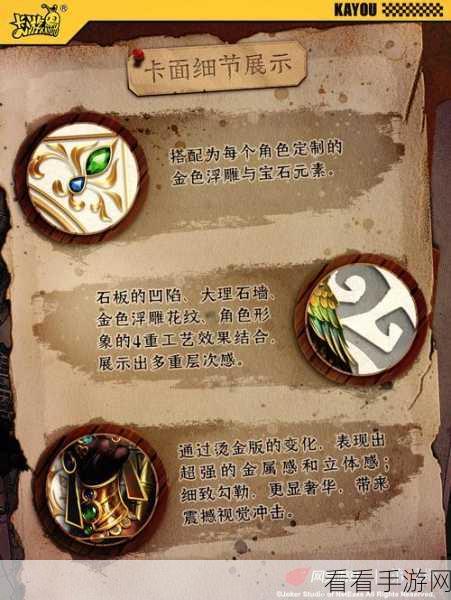 卡游
®
KAYOU
卡面细节展示
搭配为每个角色定制的
金色浮雕与宝石元素。
石板的凹陷、大理石墙、
金色浮雕花纹、角色形
象的4重工艺效果结合，
展示出多重层次感。
通过烫金版的变化，表现出
超强的金属感和立体感；
细致勾勒，更显奢华，带来
震撼视觉冲击。
看看手游网
©Joker Studio of NetEase All Rights Reserved.